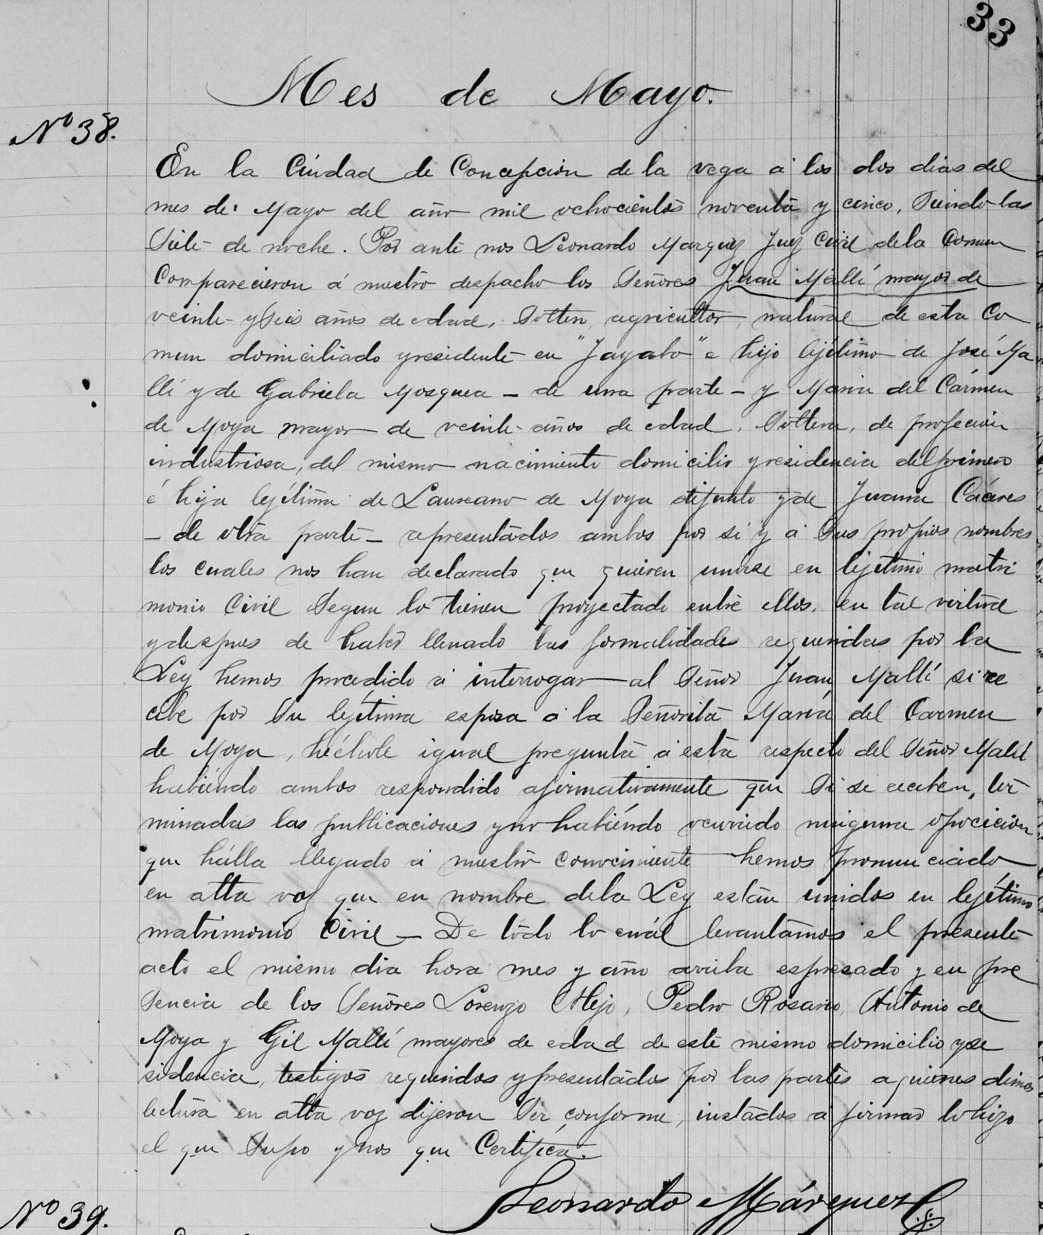 33
Mes de Mayo.
Nº 38.
En la Ciudad de Concepcion de la vega á los dos dias del
mes de Mayo del año mil ochocientos noventa y cinco, Siendo las
Siete de noche. Por ante nos Leonardo Marquez Juez Civil de la Comun
Comparecieron á nuestro despacho los Señores Juan Mallé mayor de
veinte y Seis años de edad, Soltero, agricultor, natural de esta Co
mun domiciliado y residente en "Jayabo" e hijo lejítimo de José Ma
llé y de Gabriela Mosquea - de una parte - y Maria del Cármen
de Moya mayor de veinte años de edad, Soltera, de profecion
industriosa, del mismo nacimiento domicilio y residencia del primero
é hija lejítima de Laureano de Moya difunto y de Juana Cáceres
- de otra parte - apresentados ambos por si y a Sus propios nombres
los cuales nos han declarado que quieren unirse en lejitimo matri
monio Civil Segun lo tienen proyectado entre ellos, en tal virtud
y despues de haber llenado las formalidades requeridas por la
Ley hemos procedido á interrogar al Señor Juan Mallé si re
cibe por Su lejítima esposa a la Señorita María del Carmen
de Moya, héchole igual pregunta a esta respecto del Señor Mallé
habiendo ambos respondido afirmativamente que Si se reciben, ter
minadas las publicaciones y no habiéndo ocurrido ninguna opocicion
que hálla llegado á nuestro conocimiento hemos pronunciado
en alta voz que en nombre de la Ley están unidos en lejítimo
matrimonio Civil - De todo lo cuál levantámos el presente
acto el mismo dia hora mes y año arriba espresado y en pre
sencia de los Señores Lorenzo Mejo, Pedro Rosario, Antonio de
Moya y Gil Mallé mayores de edad de este mismo domicilio y re
sidencia, testigos requeridos y presentados por las partes a quienes dimos
lectura en alta voz dijeron Ser conforme, instados a firmar lo hizo
el que Supo y nos que Certifica.
Leonardo Márquez
Nº 39.